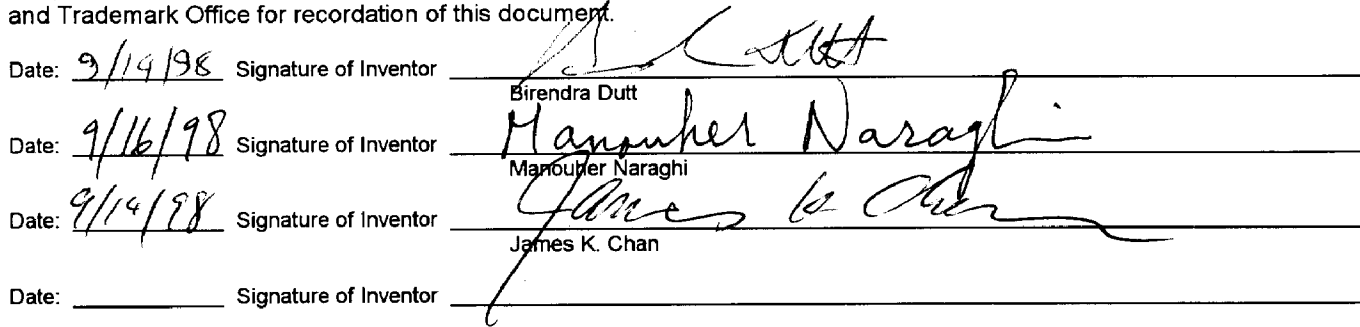 and Trademark Office for recordation of this document.
Date: 9/14/98 Signature of Inventor
Birendra Dutt
Date: 9/16/98 Signature of Inventor Manouher Naraghi
Manouher Naraghi
Date: 9/14/98 Signature of Inventor James K Chan
James K. Chan
Date: Signature of Inventor